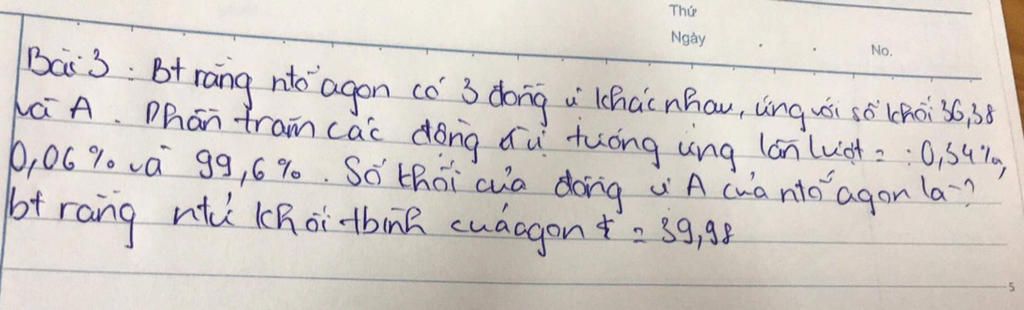 Thứ
Ngày . . No.
Bài 3 : Bt rằng ntố agon có 3 đồng vị khác nhau, ứng với số khối 36,38
và A. Phần trăm các đồng vị tương ứng lần lượt = : 0,34%,
0,06% và 99,6%. Số khối của đồng vị A của ntố agon là ?
bt rằng ntử khối tbình của agon = 39,98
5